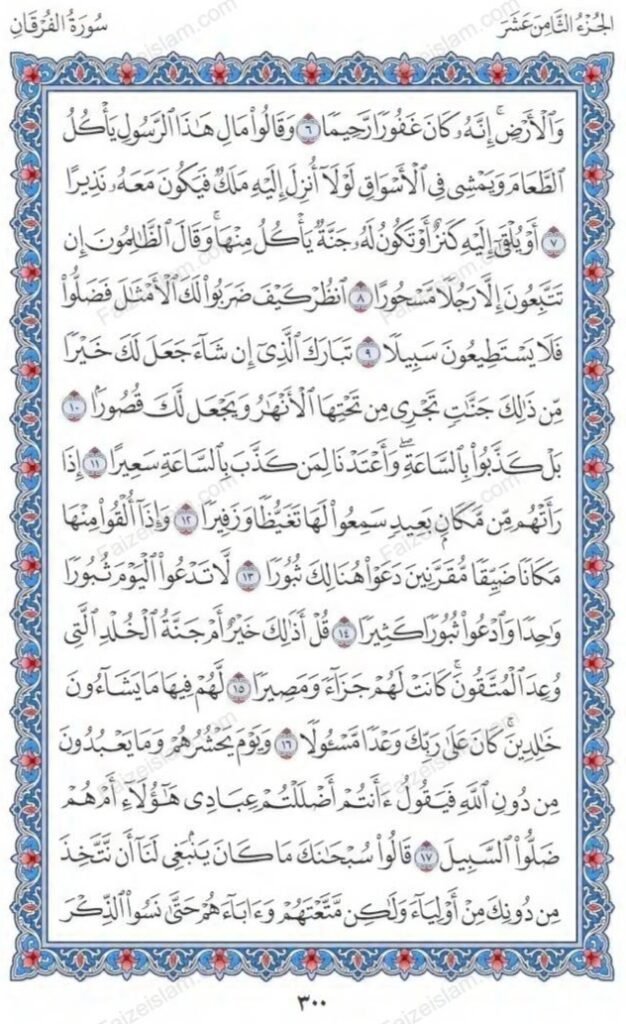 الجُزْءُ الثَّامِنَ عَشَرَ
سُورَةُ الفُرْقَانِ
وَٱلْأَرْضِۚ إِنَّهُۥ كَانَ غَفُورًا رَّحِيمًا ٦ وَقَالُوا۟ مَالِ هَٰذَا ٱلرَّسُولِ يَأْكُلُ
ٱلطَّعَامَ وَيَمْشِى فِى ٱلْأَسْوَاقِ لَوْلَآ أُنزِلَ إِلَيْهِ مَلَكٌ فَيَكُونَ مَعَهُۥ نَذِيرًا
٧ أَوْ يُلْقَىٰٓ إِلَيْهِ كَنزٌ أَوْ تَكُونُ لَهُۥ جَنَّةٌ يَأْكُلُ مِنْهَاۚ وَقَالَ ٱلظَّٰلِمُونَ إِن
تَتَّبِعُونَ إِلَّا رَجُلًا مَّسْحُورًا ٨ ٱنظُرْ كَيْفَ ضَرَبُوا۟ لَكَ ٱلْأَمْثَٰلَ فَضَلُّوا۟
فَلَا يَسْتَطِيعُونَ سَبِيلًا ٩ تَبَارَكَ ٱلَّذِىٓ إِن شَآءَ جَعَلَ لَكَ خَيْرًا
مِّن ذَٰلِكَ جَنَّٰتٍ تَجْرِى مِن تَحْتِهَا ٱلْأَنْهَٰرُ وَيَجْعَل لَّكَ قُصُورًۢا ١٠
بَلْ كَذَّبُوا۟ بِٱلسَّاعَةِۖ وَأَعْتَدْنَا لِمَن كَذَّبَ بِٱلسَّاعَةِ سَعِيرًا ١١ إِذَا
رَأَتْهُم مِّن مَّكَانٍۭ بَعِيدٍ سَمِعُوا۟ لَهَا تَغَيُّظًا وَزَفِيرًا ١٢ وَإِذَآ أُلْقُوا۟ مِنْهَا
مَكَانًا ضَيِّقًا مُّقَرَّنِينَ دَعَوْا۟ هُنَالِكَ ثُبُورًا ١٣ لَّا تَدْعُوا۟ ٱلْيَوْمَ ثُبُورًا
وَٰحِدًا وَٱدْعُوا۟ ثُبُورًا كَثِيرًا ١٤ قُلْ أَذَٰلِكَ خَيْرٌ أَمْ جَنَّةُ ٱلْخُلْدِ ٱلَّتِى
وُعِدَ ٱلْمُتَّقُونَۚ كَانَتْ لَهُمْ جَزَآءً وَمَصِيرًا ١٥ لَّهُمْ فِيهَا مَا يَشَآءُونَ
خَٰلِدِينَۚ كَانَ عَلَىٰ رَبِّكَ وَعْدًا مَّسْـُٔولًا ١٦ وَيَوْمَ يَحْشُرُهُمْ وَمَا يَعْبُدُونَ
مِن دُونِ ٱللَّهِ فَيَقُولُ ءَأَنتُمْ أَضْلَلْتُمْ عِبَادِى هَٰٓؤُلَآءِ أَمْ هُمْ
ضَلُّوا۟ ٱلسَّبِيلَ ١٧ قَالُوا۟ سُبْحَٰنَكَ مَا كَانَ يَنۢبَغِى لَنَآ أَن نَّتَّخِذَ
مِن دُونِكَ مِنْ أَوْلِيَآءَ وَلَٰكِن مَّتَّعْتَهُمْ وَءَابَآءَهُمْ حَتَّىٰ نَسُوا۟ ٱلذِّكْرَ
٣٠٠
Faizeislam.com